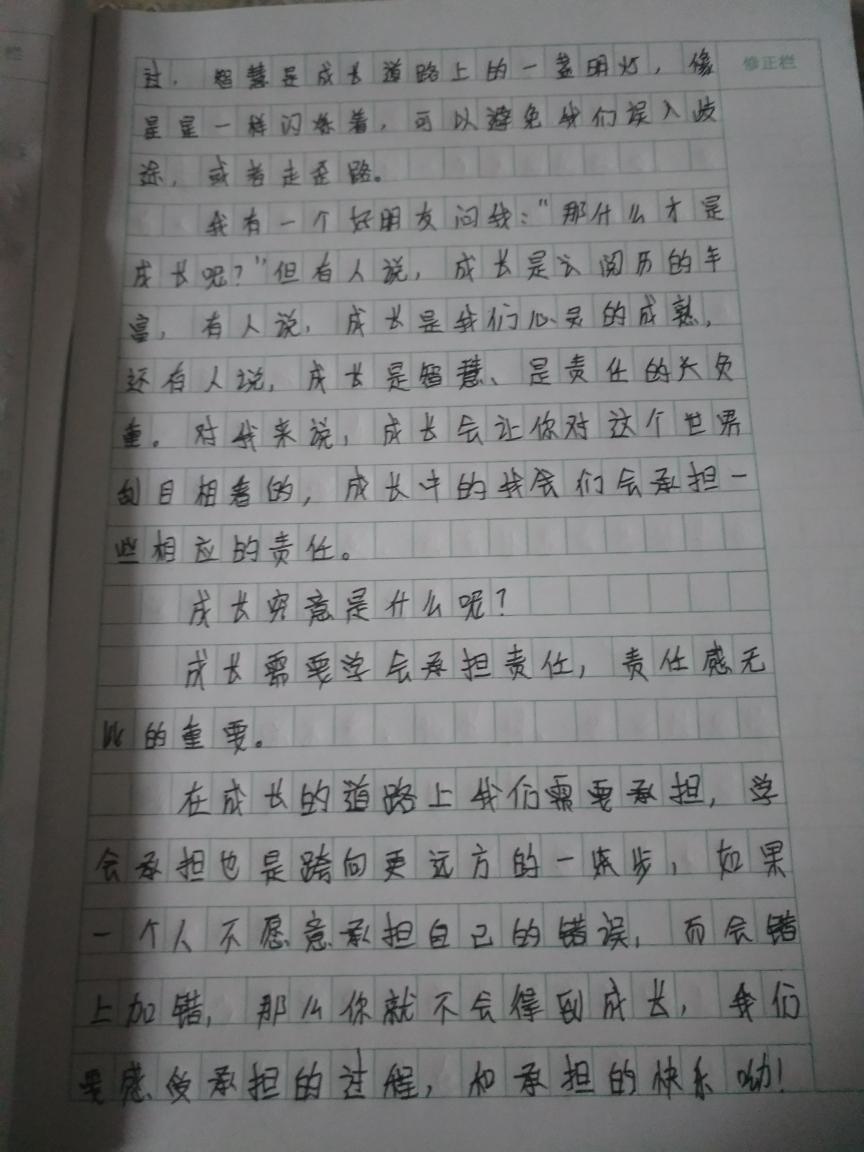 修正栏
过，智慧是成长道路上的一盏明灯，像
星星一样闪烁着，可以避免我们误入歧
途，或者走歪路。
我有一个好朋友问我：“那什么才是
成长呢？”但有人说，成长是阅历的丰
富，有人说，成长是我们心灵的成熟，
还有人说，成长是智慧、是责任的负
重。对我来说，成长会让你对这个世界
刮目相看的，成长中的我们会承担一
些相应的责任。
成长究竟是什么呢？
成长需要学会承担责任，责任感无
比的重要。
在成长的道路上我们需要承担，学
会承担也是跨向更远方的一步，如果
一个人不愿意承担自己的错误，而会错
上加错，那么你就不会得到成长，我们
要感受承担的过程，和承担的快乐呦！